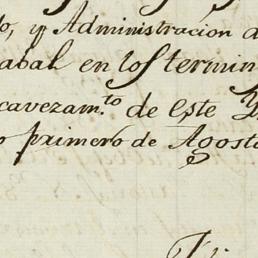 o, y Administracion d
abal en los termin
cavezam.to de este
primero de Agosto